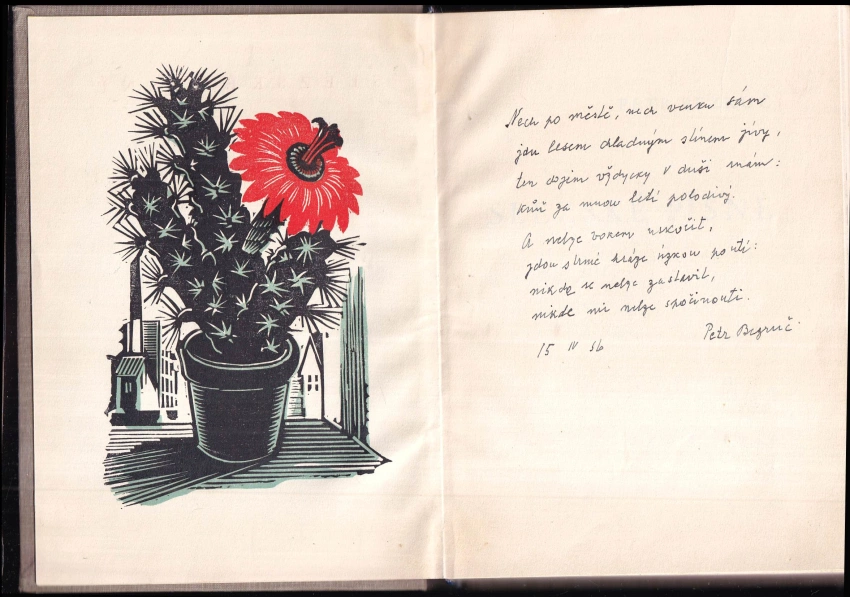 Nech po městě, nech venku sám
jdu lesem chladným stínem jívy,
ten dojem vždycky v duši mám:
kůň za mnou letí polodivý.
A nelze bokem uskočit,
jdou stráže úzkou poutí:
nikde se nelze zastavit,
nikde mi nelze spočinouti.
Petr Bezruč
15 IV 56